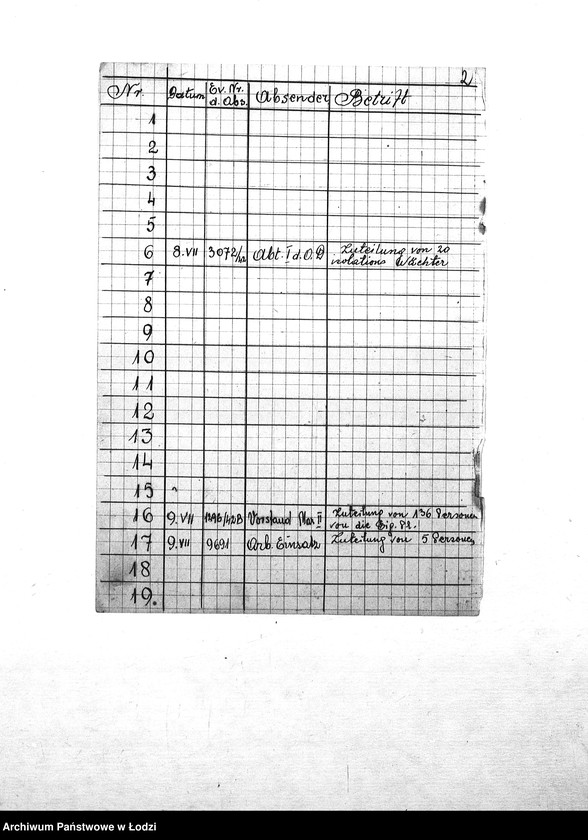 2
Nr. Datum Ev. Nr. d. Abs. Absender Betrift
1
2
3
4
5
6 8.VII 3072/42 Abt. I d. O.D Zuteilung von 20
isolations Wächter
7
8
9
10
11
12
13
14
15
16 9.VII Vorstand II Zuteilung von 136 Personen
von die
17 9.VII 9691 Arb. Einsatz Zuteilung von 5 Personen
18
19.
Archiwum Państwowe w Łodzi